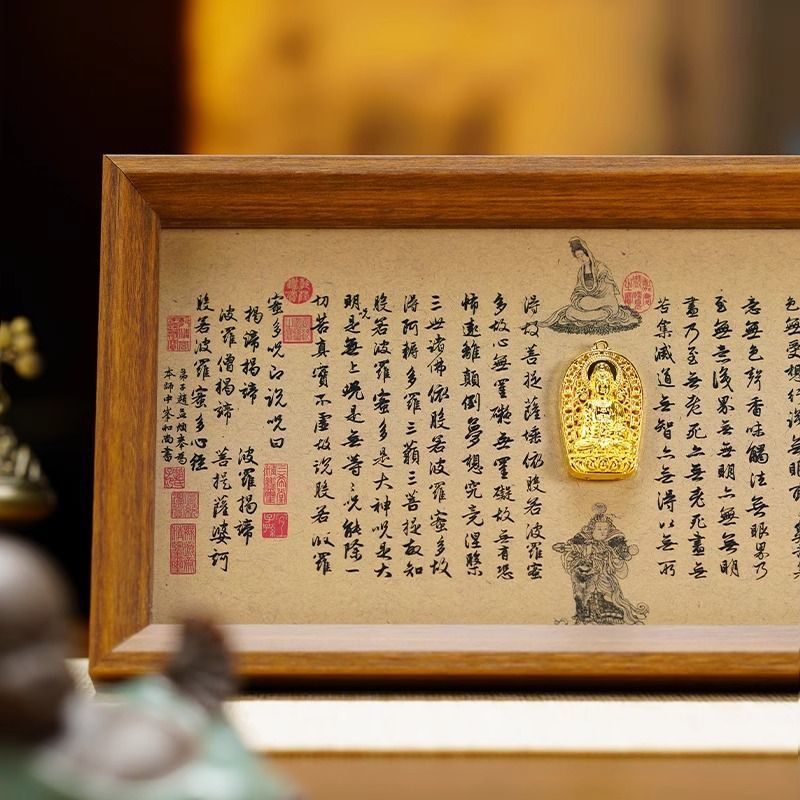 色無受想行識無眼耳
意無色聲香味觸法無眼界乃
至無意識界無無明亦無無明
盡乃至無老死亦無老死盡無
苦集滅道無智亦無得以無所
得故菩提薩埵依般若波羅蜜
多故心無罣礙無罣礙故無有恐
怖遠離顛倒夢想究竟涅槃
三世諸佛依般若波羅蜜多故
得阿耨多羅三藐三菩提故知
般若波羅蜜多是大神呪是大
明呪是無上呪是無等等呪能除一
切苦真實不虛故說般若波羅
蜜多呪即說呪曰
揭諦揭諦 波羅揭諦
波羅僧揭諦 菩提薩婆訶
般若波羅蜜多心經
弟子趙孟頫奉為
本師中峯和尚書